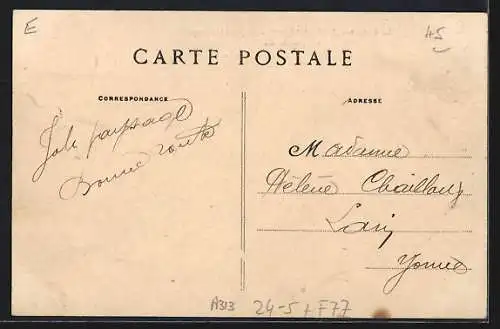 E
45
CARTE POSTALE
CORRESPONDANCE
ADRESSE
Joli paysage
Bonne route
Madame
Hélène
Yonne
A313
24-5 + F77